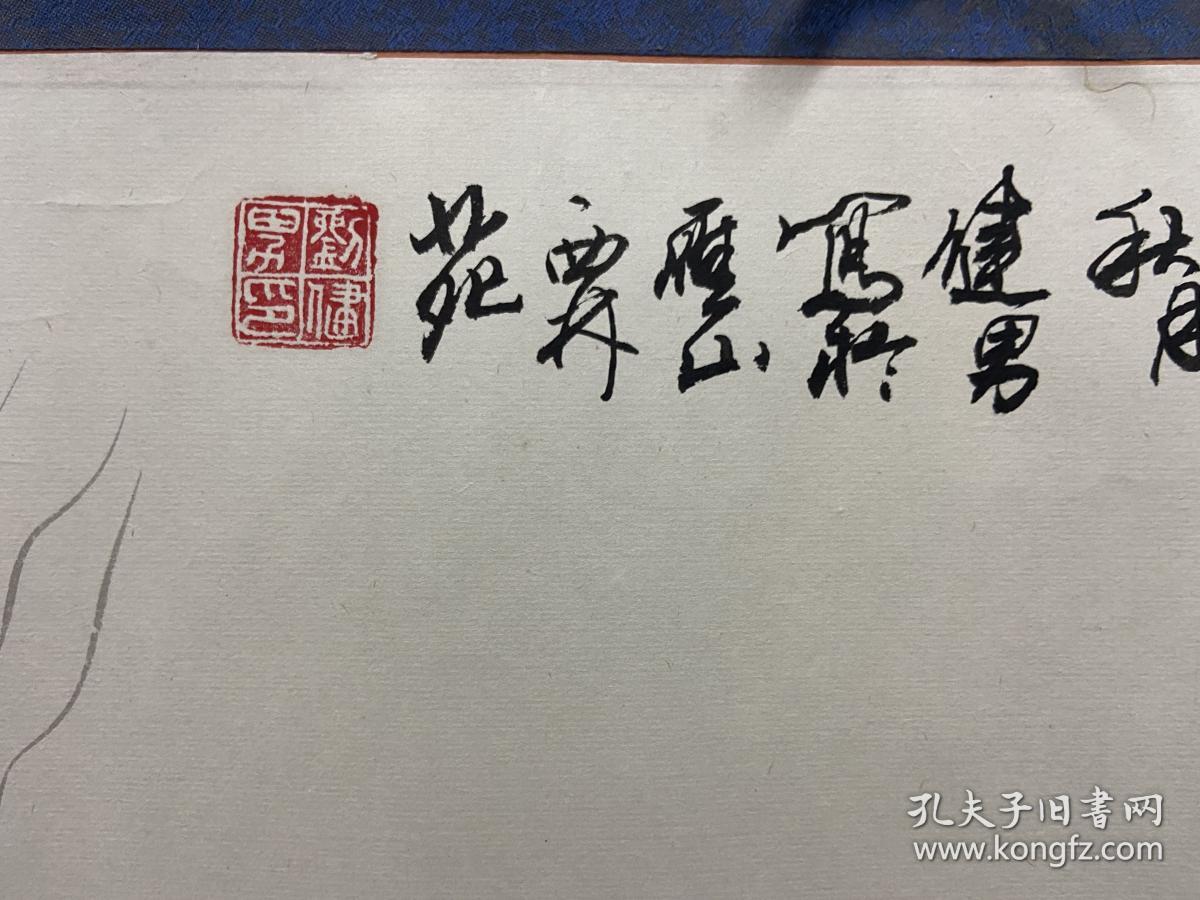 秋月
健男
寫於
雁山
西林
苑
劉健男印
孔夫子旧书网
www.kongfz.com